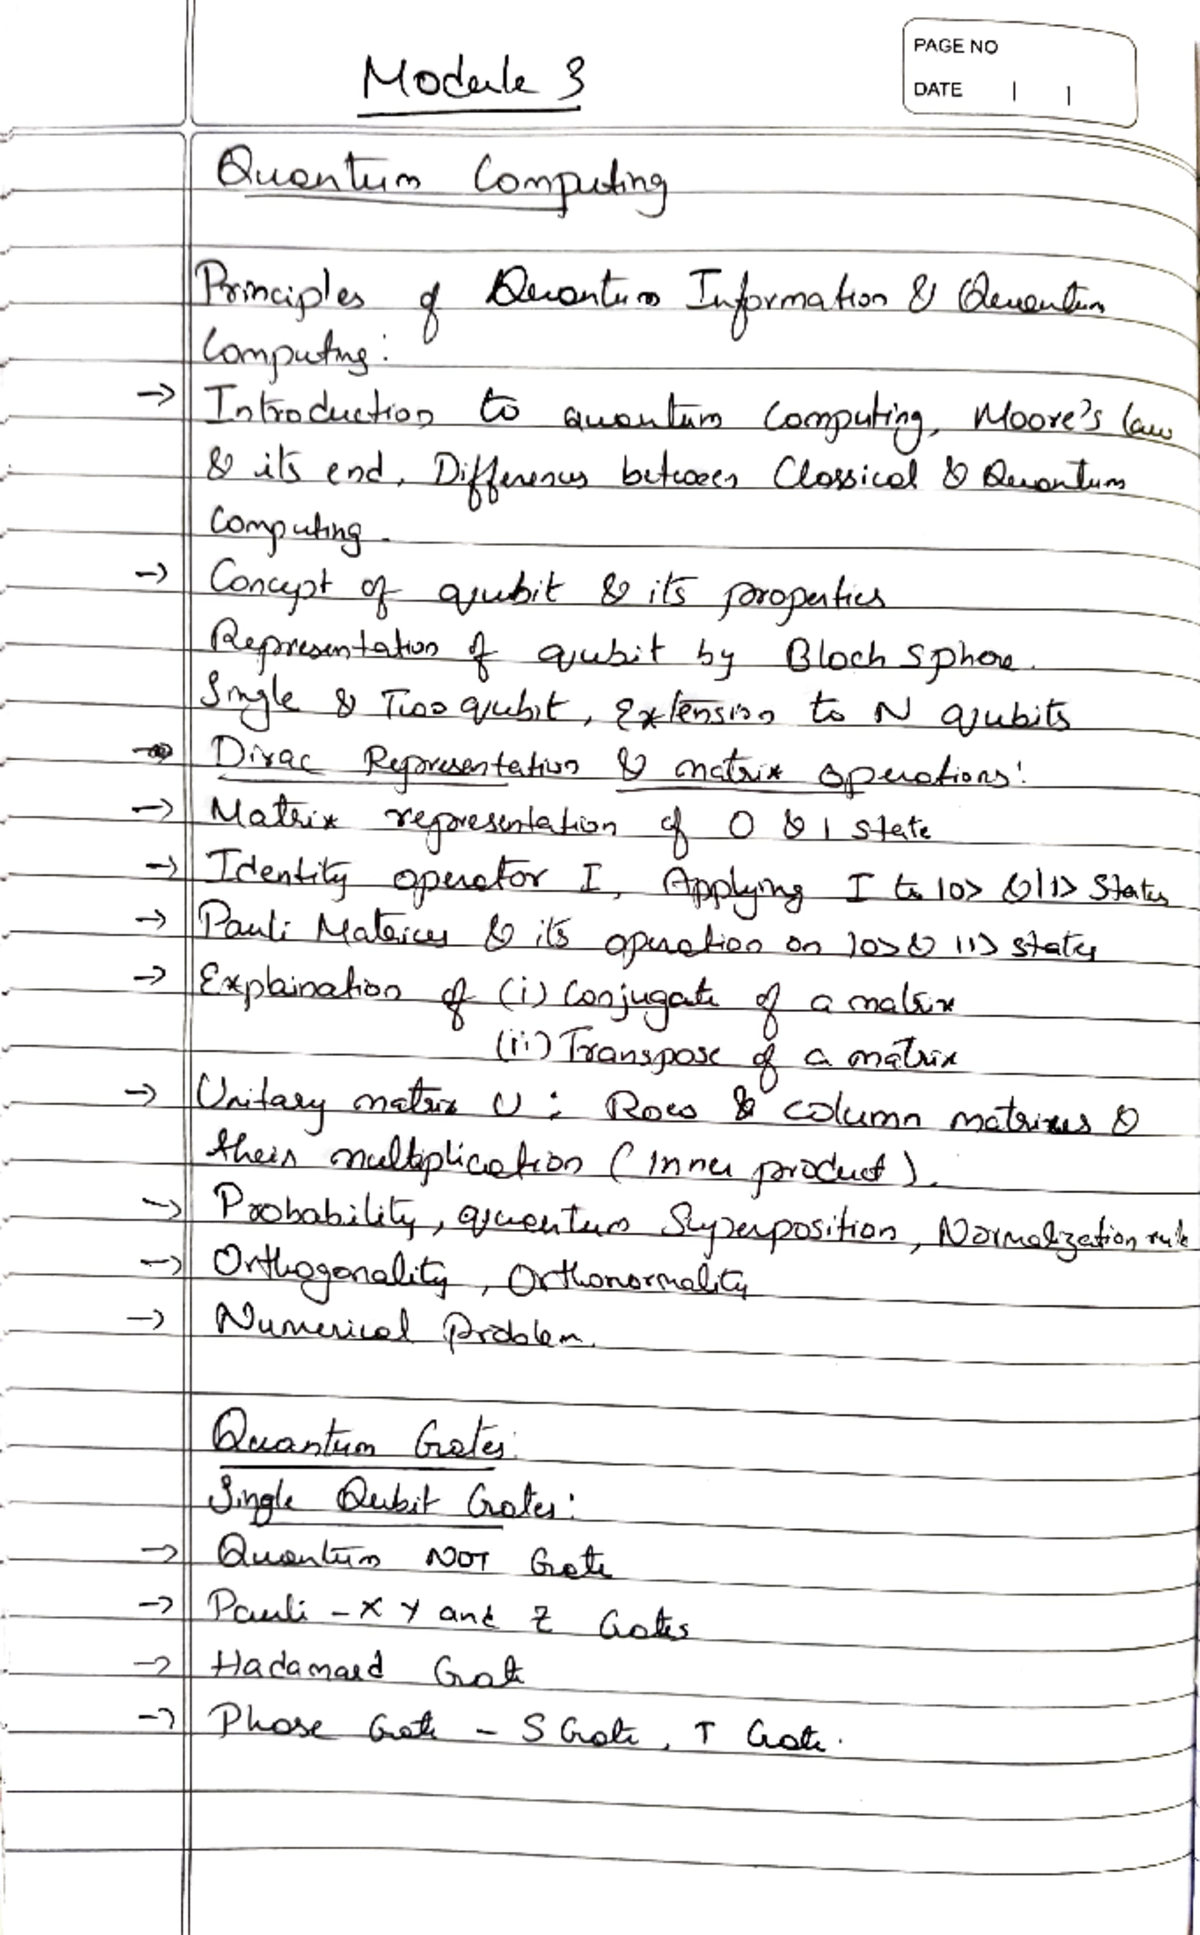 Module 3
PAGE NO
DATE | |
Quantum Computing
Principles of Quantum Information & Quantum
Computing:
→ Introduction to quantum Computing, Moore's law
& its end, Differences between Classical & Quantum
Computing.
→ Concept of qubit & its properties
Representation of qubit by Bloch Sphere.
Single & Two qubit, Extension to N qubits
→ Dirac Representation & matrix operations:
→ Matrix representation of 0 & 1 state
→ Identity operator I, Applying I to |0> & |1> States
→ Pauli Matrices & its operation on |0> & |1> states
→ Explaination of (i) Conjugate of a matrix
(ii) Transpose of a matrix
→ Unitary matrix U : Row & column matrixes &
their multiplication (Inner product).
→ Probability, quantum Superposition, Normalization rule
→ Orthogonality, Orthonormality
→ Numerical Problem.
Quantum Gates:
Single Qubit Gates:
→ Quantum NOT Gate
→ Pauli - X Y and Z Gates
→ Hadamard Gate
→ Phase Gate - S Gate, T Gate.